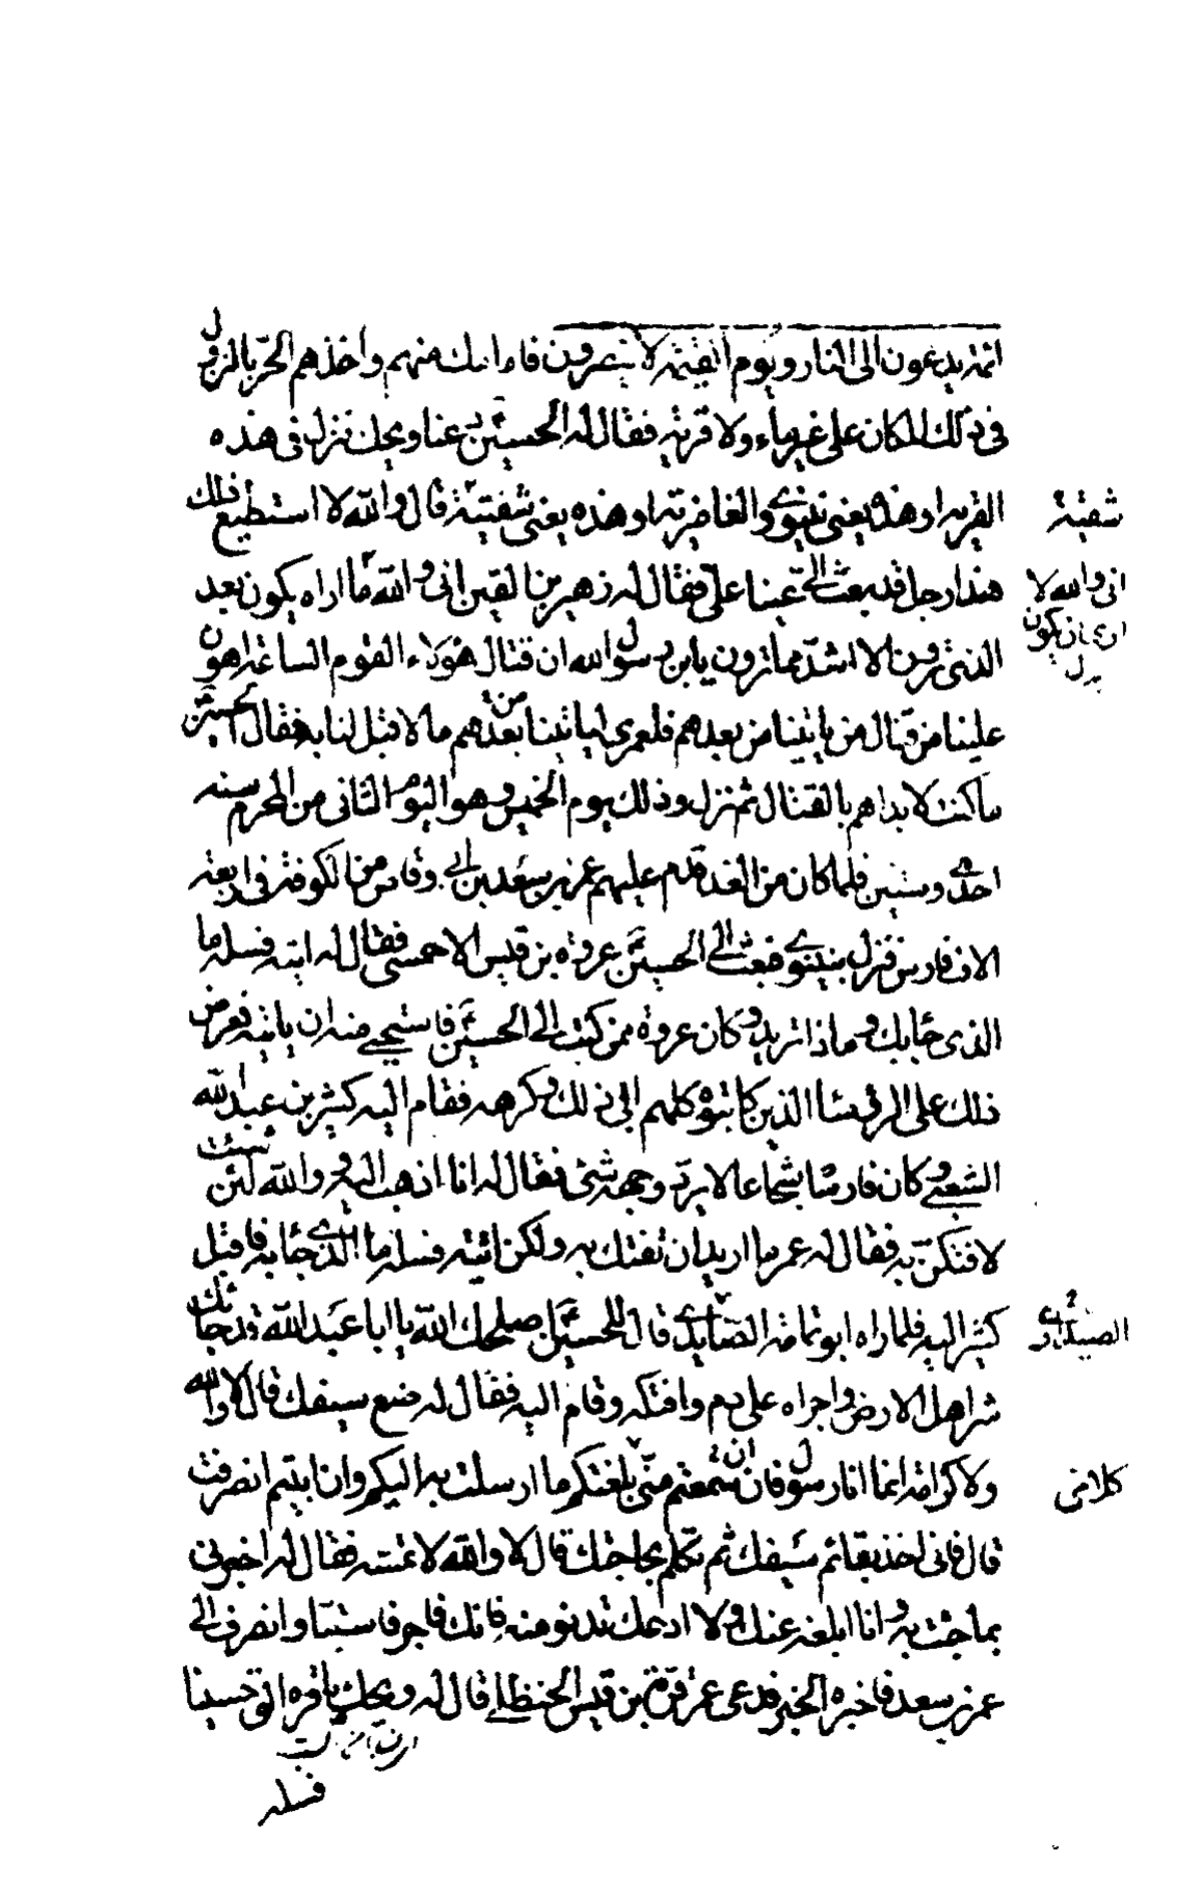 ائمة يدعون الى النار ويوم القيمة لا ينصرون فامامك منهم واخذهم الحر بالنزول
فى ذلك المكان على غير ماء ولا قرية فقال له الحسين دعنا ويحك ننزل فى هذه
القرية او هذه يعنى نينوى والغاضرية او هذه يعنى شفيتة قال والله لا استطيع ذلك
شفيتة
هذا رجل قد بعث الى عينا على فقال له زهير بن القين انى والله ما اراه يكون بعد
انى والله لا ارى ان يكون
الذى ترون الا اشد مما ترون يابن رسول الله ان قتال هؤلاء القوم الساعة اهون
علينا من قتال من ياتينا من بعدهم فلعمرى لياتينا من بعدهم ما لا قبل لنا به فقال الحسين
ما كنت لابداهم بالقتال ثم نزل وذلك يوم الخميس وهو اليوم الثانى من المحرم سنه
احدى وستين فلما كان من الغد قدم عليهم عمر بن سعد بن ابى وقاص من الكوفة فى اربعة
الاف فارس فنزل بنينوى فبعث الى الحسين عروة بن قيس الاحمسى فقال له ائته فسله ما
الذى جابك وماذا تريد وكان عروة ممن كتب الى الحسين فاستحيى منه ان ياتيه فعرض
ذلك على الرؤسا الذين كاتبوه كلهم ابى ذلك وكرهه فقام اليه كثير بن عبد الله
الشعبى وكان فارسا شجاعا لا يرد وجهه شئ فقال له انا اذهب اليه والله لئن شئت
لافتكن به فقال له عمر ما اريد ان تفتك به ولكن ائته فسله ما الذى جا به فاقبل
كثير اليه فلما راه ابو ثمامة الصايدى قال للحسين اصلحك الله يا ابا عبد الله قد جائك
الصيداوى
شر اهل الارض واجراه على دم وافتكه وقام اليه فقال له ضع سيفك قال لا والله
ولا كرامة انما انا رسول فان سمعتم منى بلغتكم ما ارسلت به اليكم وان ابيتم انصرفت
كلامى
قال فانى اخذ بقائم سيفك ثم تكلم بحاجتك قال لا والله لا تمسه فقال له اخبرنى
بما جئت به وانا ابلغه عنك ولا ادعك تدنو منه فانك فاجر فاستبا وانصرف الى
عمر بن سعد فاخبره الخبر فدعى عمر قرة بن قيس الحنظلى قال له ويحك يا قره الق حسينا
فسله